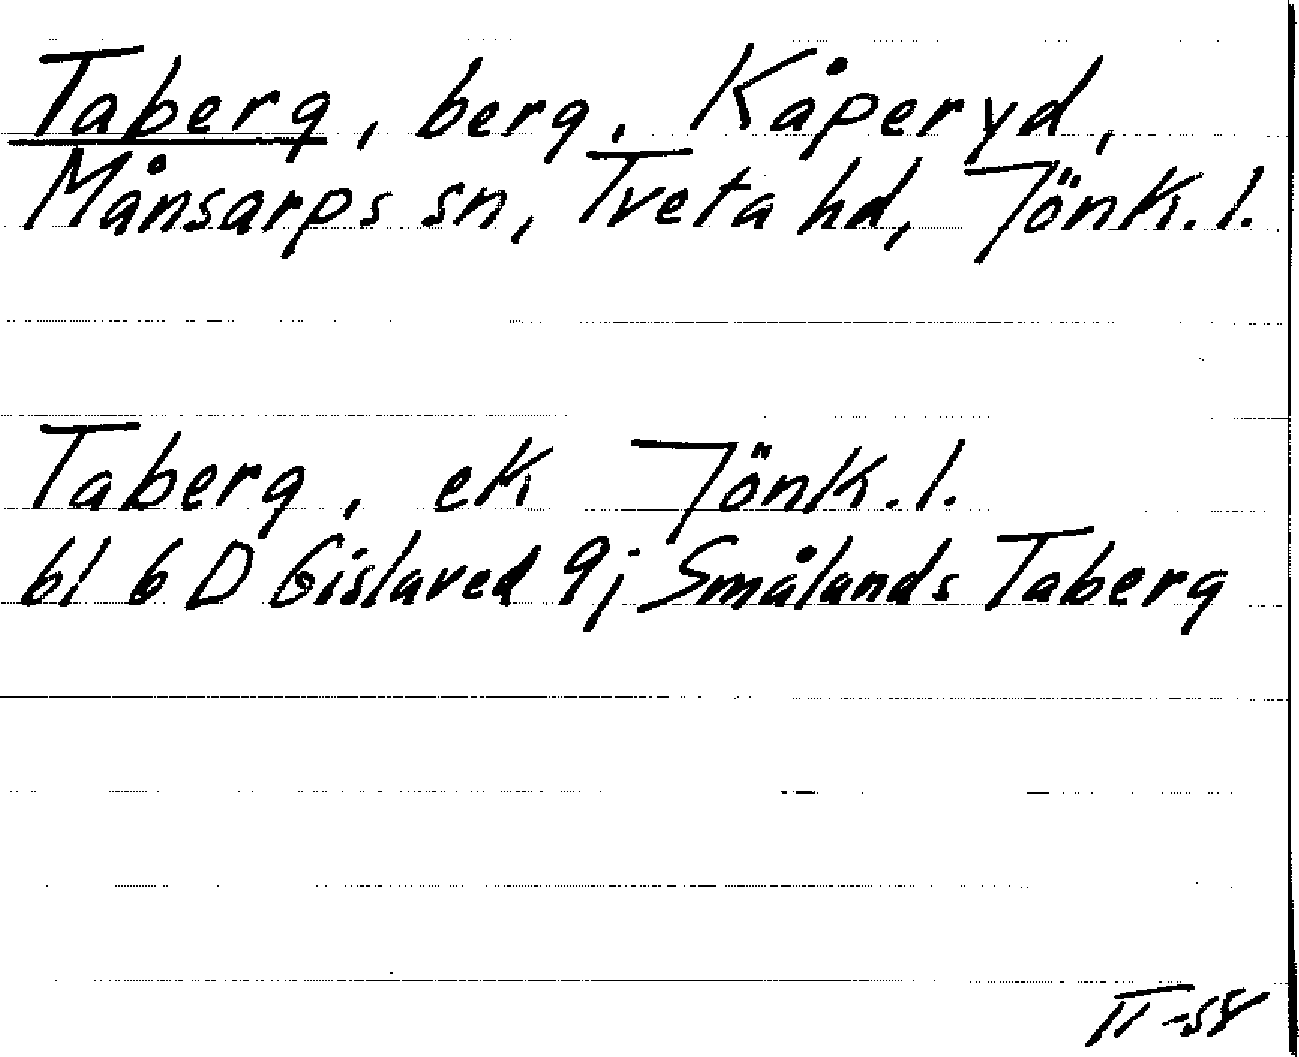 Taberg, berg, Kåperyd,
Månsarps sn, Tveta hd, Jönk. l.
Taberg, ek Jönk. l.
bl 6 D Gislaved 9j Smålands Taberg